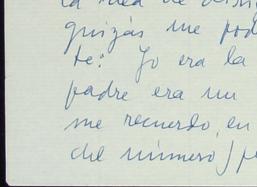 la idea de
quizás me pod
te: Yo era la
padre era un
me recuerdo, en
del número) pe